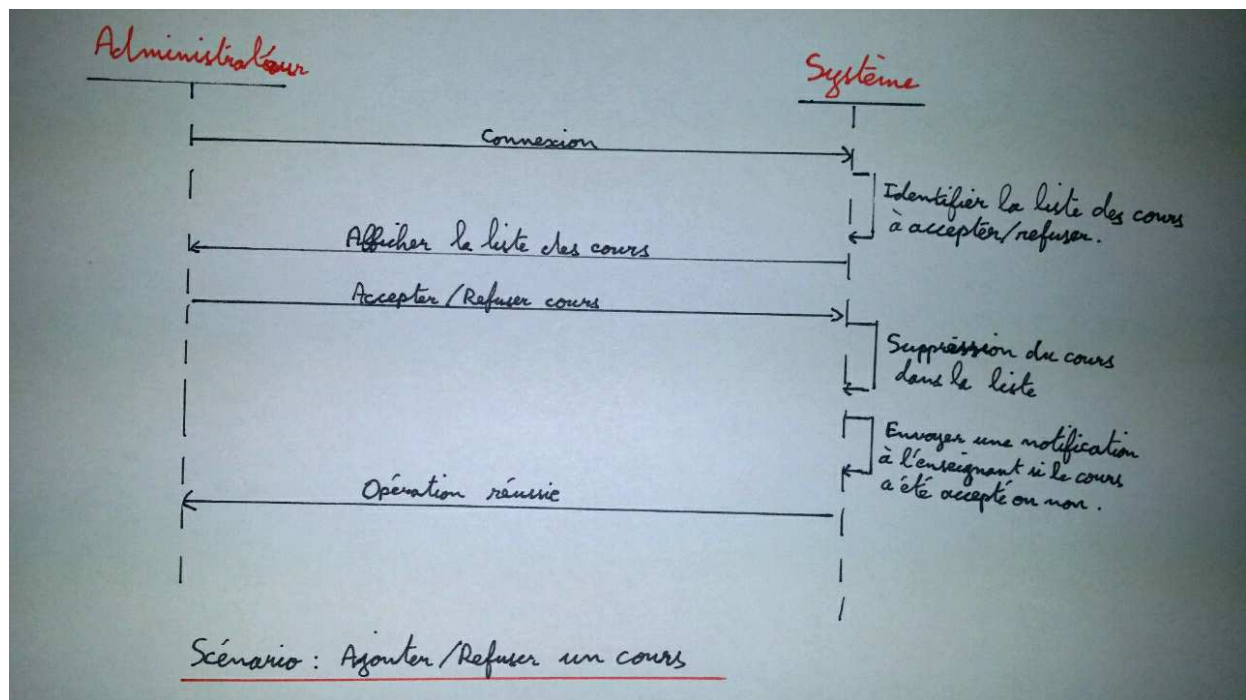 Administrateur
Système
Connexion
Identifier la liste des cours
à accepter/refuser.
Afficher la liste des cours
Accepter/Refuser cours
Suppression du cours
dans la liste
Envoyer une notification
à l'enseignant si le cours
a été accepté ou non.
Opération réussie
Scénario : Ajouter/Refuser un cours